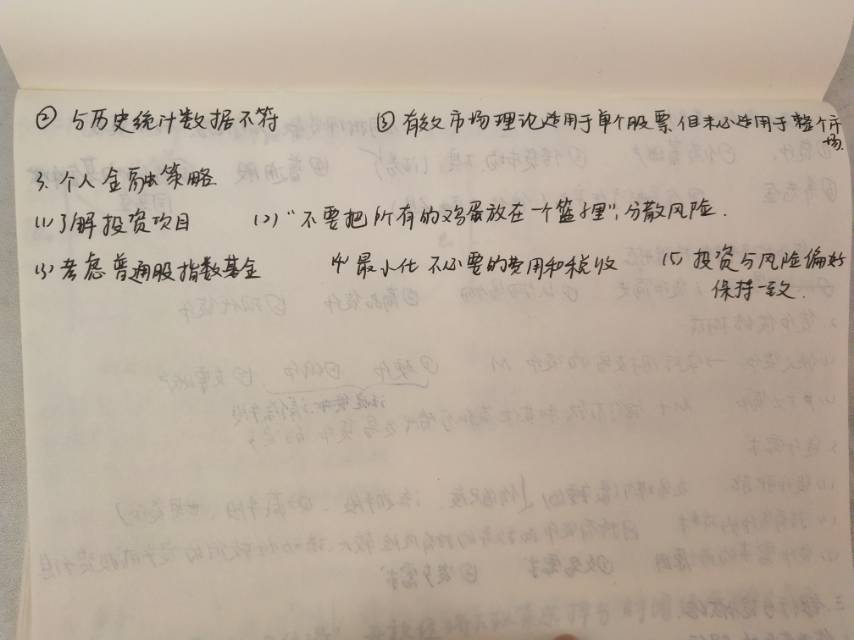 ② 与历史统计数据不符 ③ 有效市场理论适用于单个股票,但未必适用于整个市场.
3. 个人金融策略
(1) 了解投资项目 (2) "不要把所有的鸡蛋放在一个篮子里",分散风险.
(3) 考虑普通股指数基金 (4) 最小化不必要的费用和税收 (5) 投资与风险偏好
保持一致.